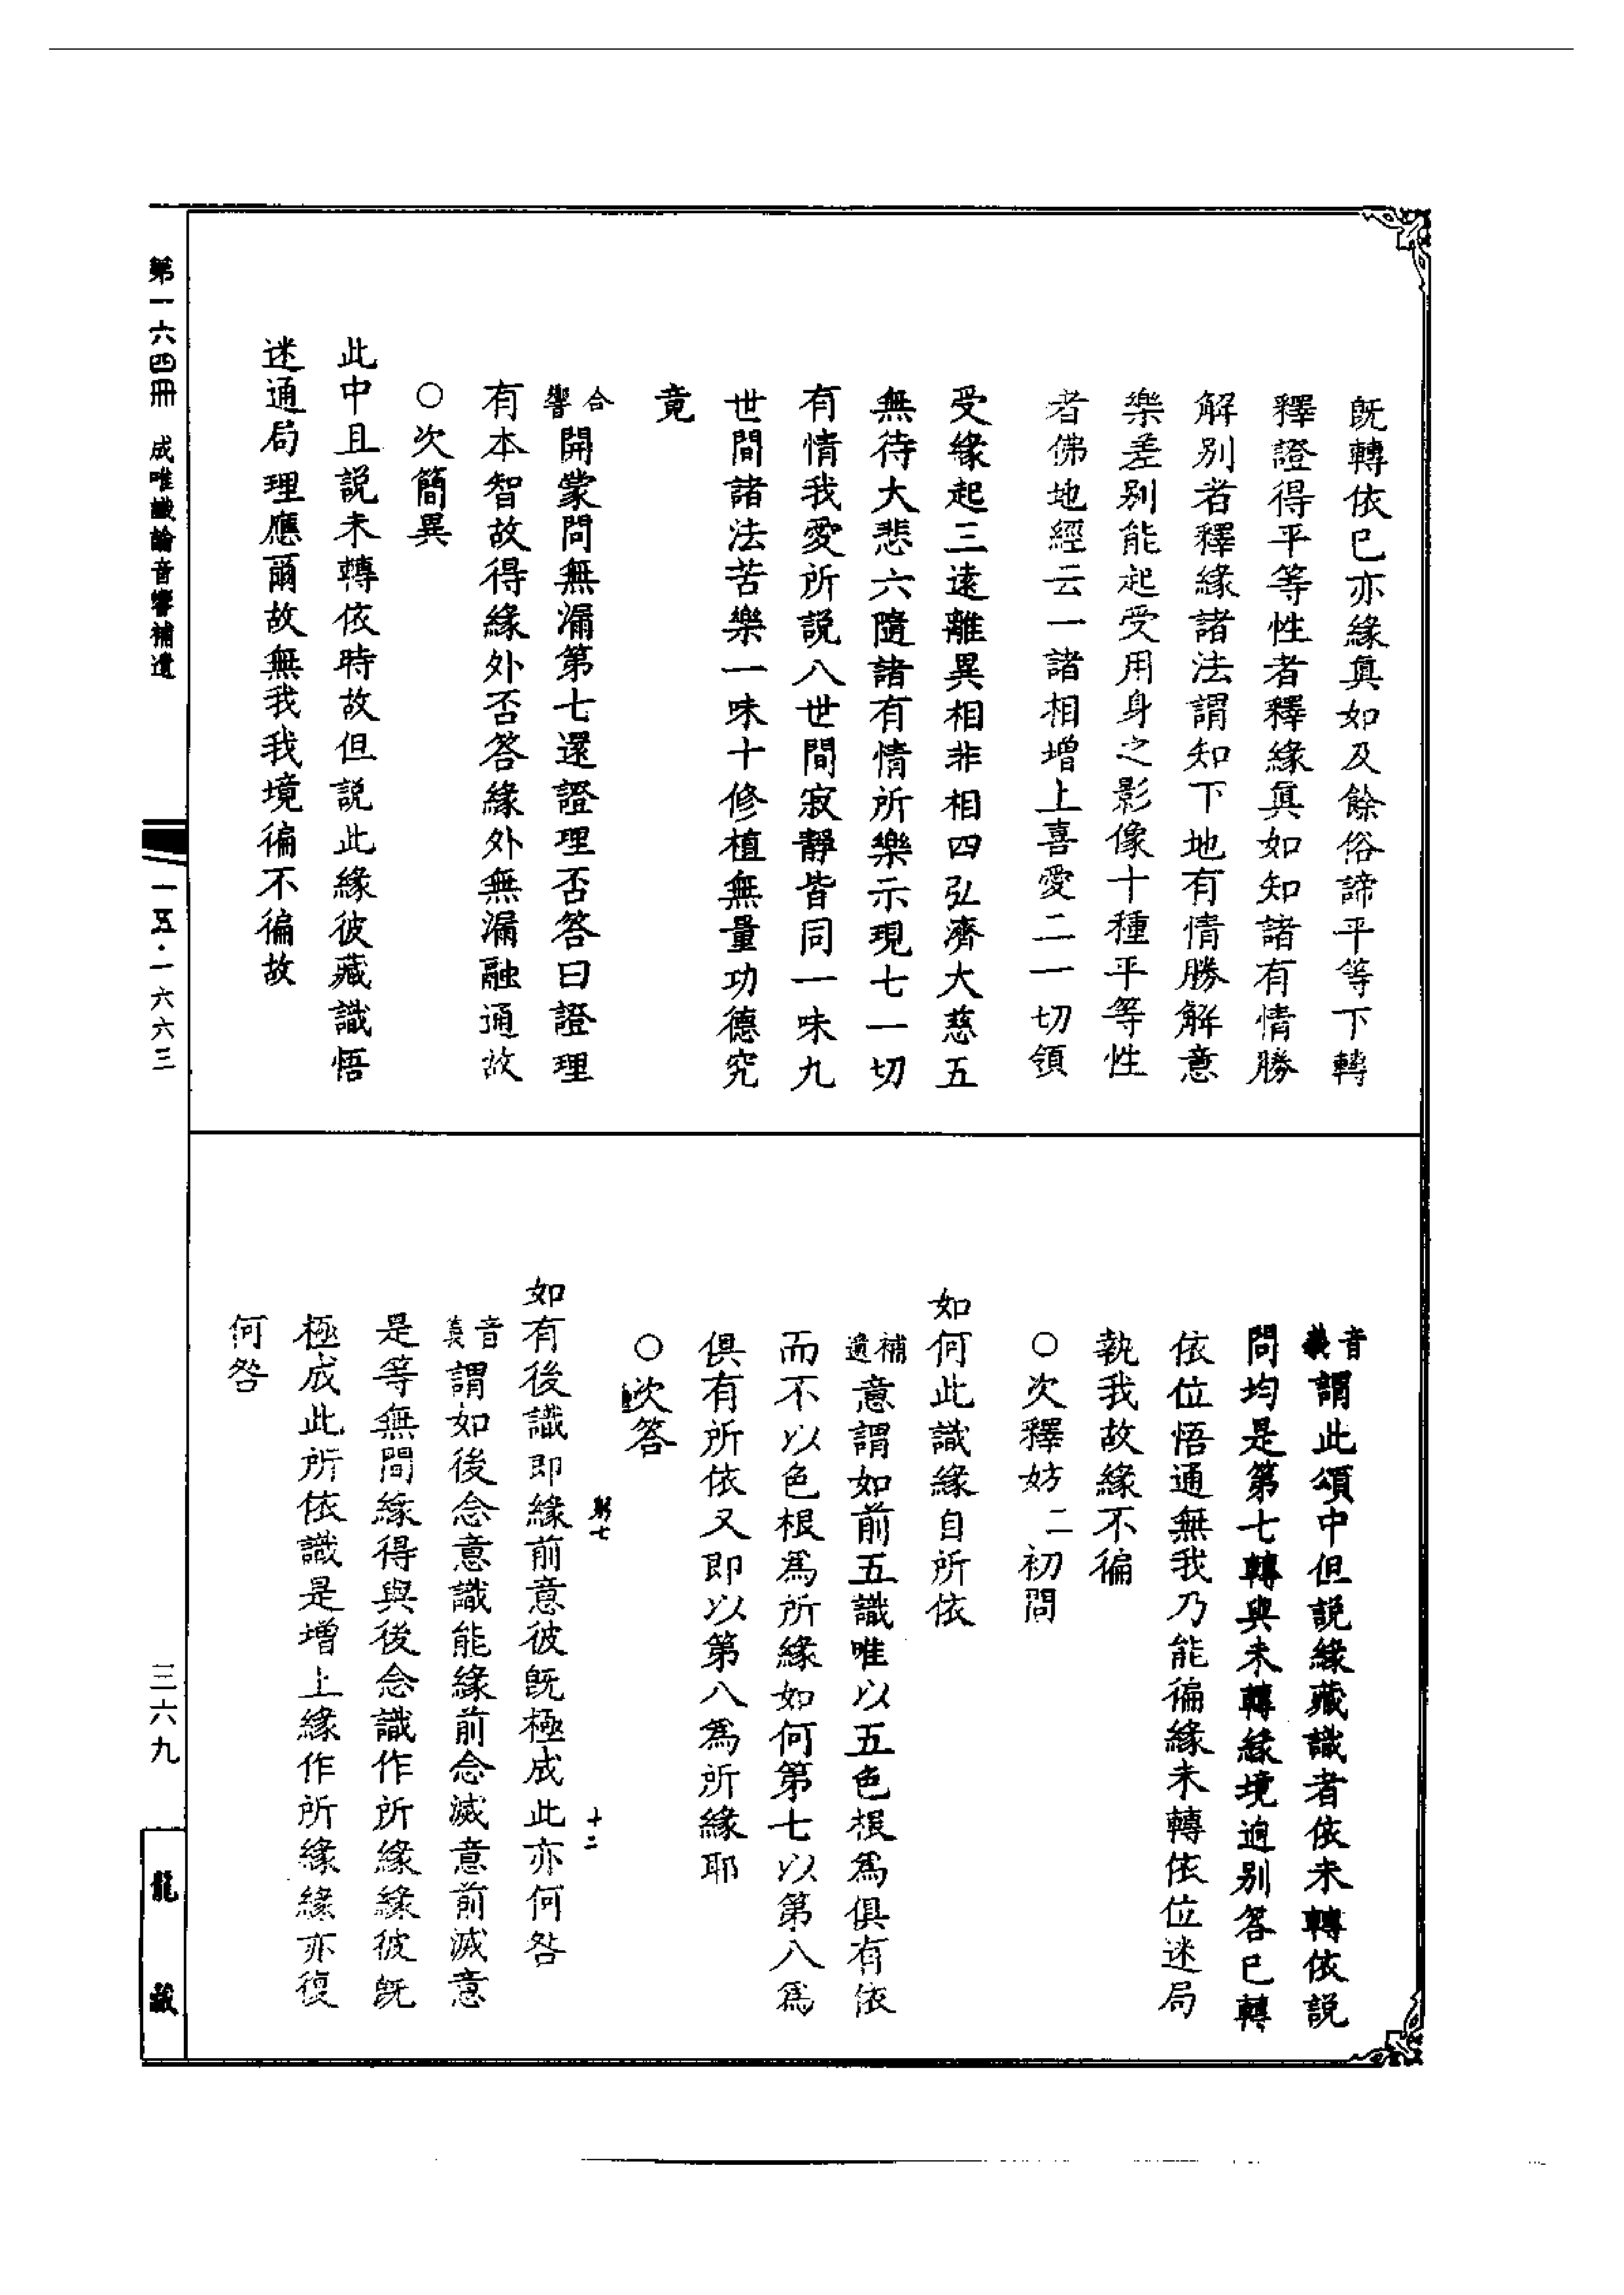 既轉依已亦緣眞如及餘俗諦平等下轉
釋證得平等性者釋緣眞如知諸有情勝
解别者釋緣諸法謂知下地有情勝解意
樂差别能起受用身之影像十種平等性
者佛地經云一諸相增上喜愛二一切領
受緣起三遠離異相非相四弘濟大慈五
無待大悲六隨諸有情所樂示現七一切
有情我愛所説八世間寂靜皆同一味九
世間諸法苦樂一味十修植無量功德究
竟
合響開蒙問無漏第七還證理否答曰證理
有本智故得緣外否答緣外無漏融通故
○次簡異
此中且説未轉依時故但説此緣彼藏識悟
迷通局理應爾故無我我境徧不徧故
音義謂此頌中但説緣藏識者依未轉依説
問均是第七轉與未轉緣境迥别答已轉
依位悟通無我乃能徧緣未轉依位迷局
執我故緣不徧
○次釋妨二初問
如何此識緣自所依
補遺意謂如前五識唯以五色根爲俱有依
而不以色根爲所緣如何第七以第八爲
俱有所依又即以第八爲所緣耶
○次答
如有後識即緣前意彼既極成此亦何咎
音義謂如後念意識能緣前念滅意前滅意
是等無間緣得與後念識作所緣緣彼既
極成此所依識是增上緣作所緣緣亦復
何咎
第一六四冊 成唯識論音響補遺
一五·一六六三
三六九
龍藏